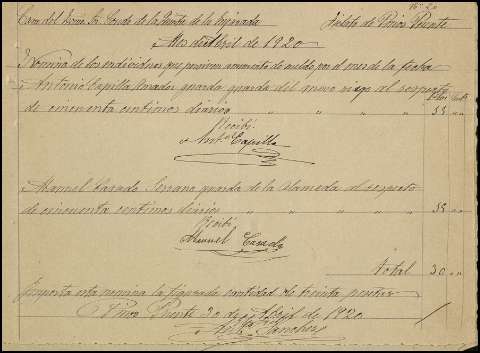 16-20
Casa del Exmo. Sr. Conde de la Puente de la
Soto de Pinos Puente
Mes de Abril de 1920
Nomina de los individuos que perciven aumento de sueldo por el mes de la fecha
Antonio Capilla guarda del nuevo riego al respecto
de cincuenta centimos diarios " " " "
Recibi
Antº Capilla
Manuel Casado Serrano guarda de la Alameda al respecto
de cincuenta centimos diarios " " " "
Recibi
Manuel Casado
Total 30 " "
Importa esta nomina la figurada cantidad de treinta pesetas
Pinos Puente 30 de Abril de 1920
Antº Sanchez